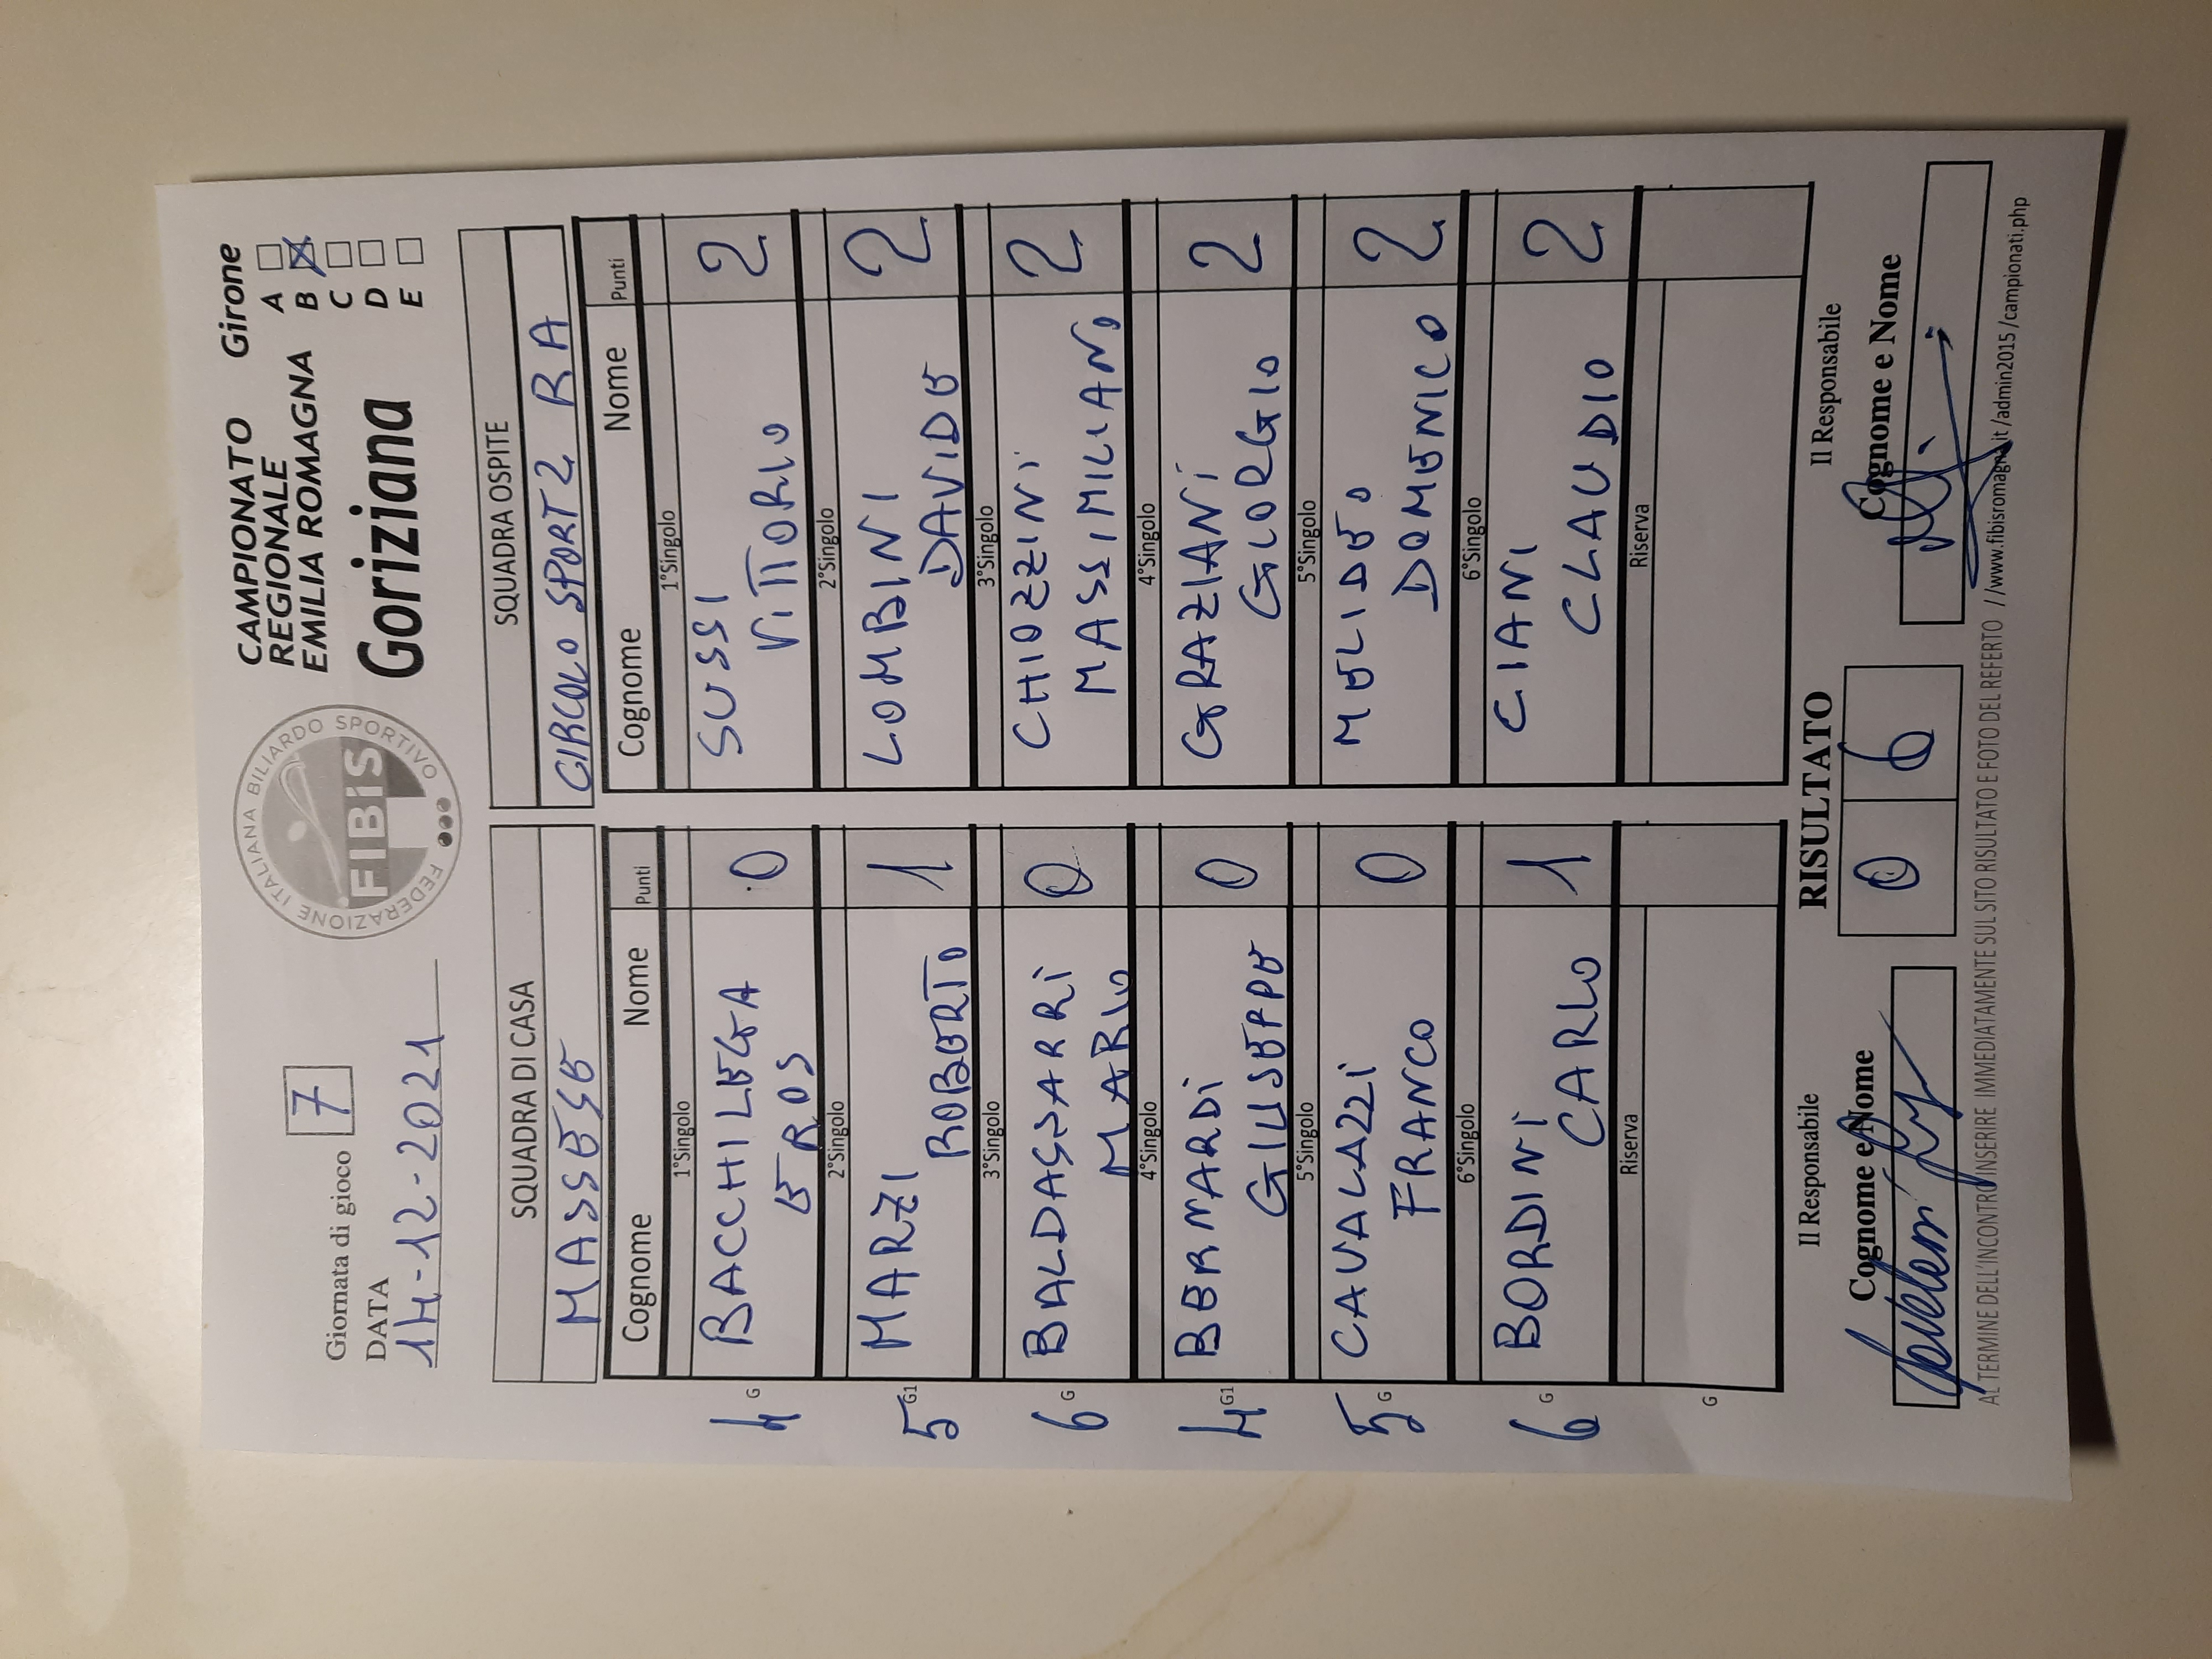 Giornata di gioco 7
DATA
14-12-2021
FEDERAZIONE ITALIANA BILIARDO SPORTIVO
FIBiS
CAMPIONATO
REGIONALE
EMILIA ROMAGNA
Goriziana
Girone
A
B
C
D
E
SQUADRA DI CASA
MASSESE
Cognome Nome Punti
1°Singolo
4 G BACCHILEGA
EROS 0
2°Singolo
5 G1 MARZI
ROBERTO 1
3°Singolo
6 G BALDASSARRI
MARIO 0
4°Singolo
4 G1 BERNARDI
GIUSEPPE 0
5°Singolo
5 G CAVALAZZI
FRANCO 0
6°Singolo
6 G BORDINI
CARLO 1
Riserva
G
SQUADRA OSPITE
CIRCOLO SPORT2 RA
Cognome Nome Punti
1°Singolo
SUSSI
VITTORIO 2
2°Singolo
LOMBINI
DAVIDE 2
3°Singolo
CHIOZZINI
MASSIMILIANO 2
4°Singolo
GRAZIANI
GIORGIO 2
5°Singolo
MELIDEO
DOMENICO 2
6°Singolo
CIANI
CLAUDIO 2
Riserva
Il Responsabile
Cognome e Nome
RISULTATO
0 6
Il Responsabile
Cognome e Nome
AL TERMINE DELL'INCONTRO INSERIRE IMMEDIATAMENTE SUL SITO RISULTATO E FOTO DEL REFERTO //www.fibisromagna.it/admin2015/campionati.php